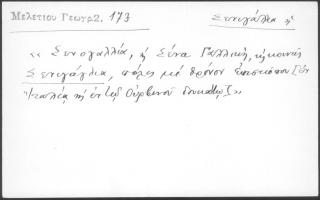 Μελετίου Γεωγρ2. 173
Σενιγάλλια ἡ
« Σενογαλλία, ἡ Σένα Γαλλική, ἡ κοινῶς
Σενιγάγλια, πόλις μὲ θρόνον ἐπισκόπου
Ἰταλίᾳ Οὐρβίνου δουκάτῳ »